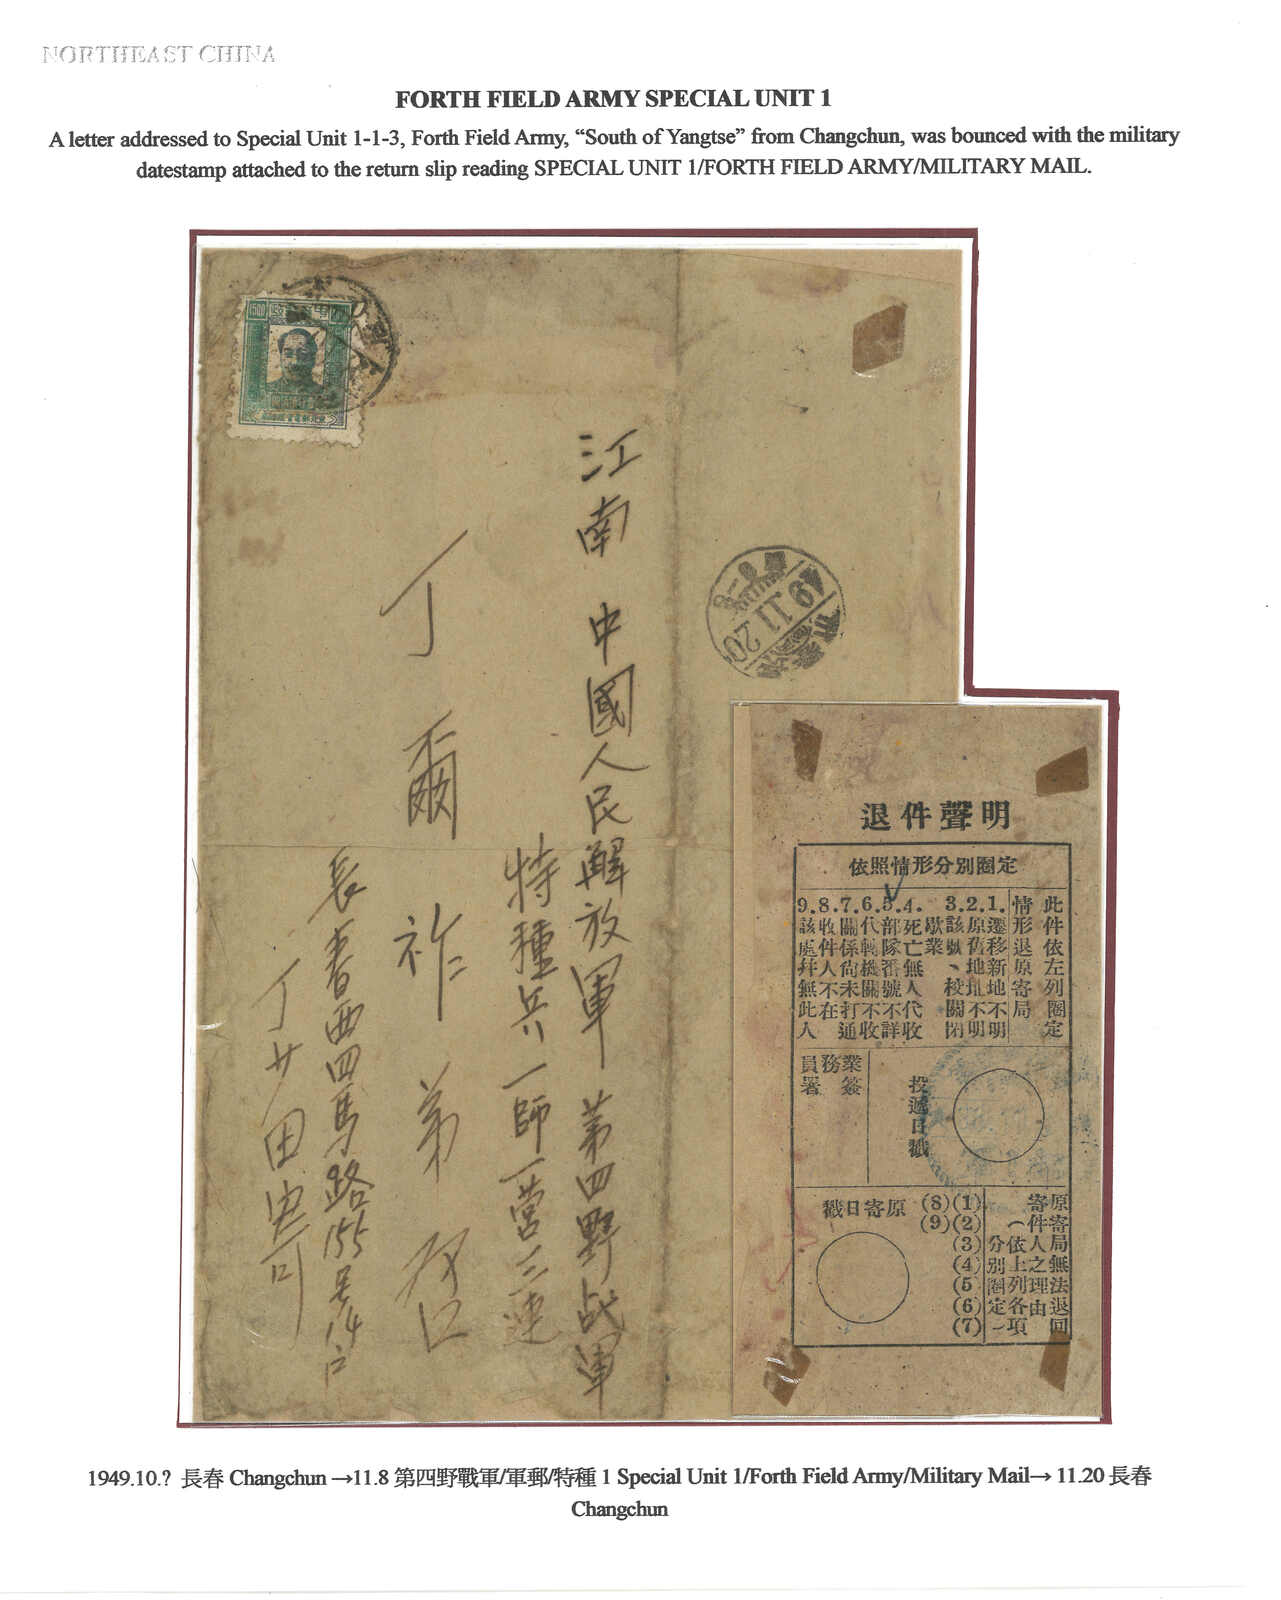 NORTHEAST CHINA
FORTH FIELD ARMY SPECIAL UNIT 1
A letter addressed to Special Unit 1-1-3, Forth Field Army, “South of Yangtse” from Changchun, was bounced with the military
datestamp attached to the return slip reading SPECIAL UNIT 1/FORTH FIELD ARMY/MILITARY MAIL.
江南 中國人民解放軍 第四野战軍
特種兵一師一营三連
丁爾祚弟啓
長春西四馬路155号14户
49.11.20
退件聲明
依照情形分別圈定
此件依左列圈定
情形退原寄局
1.遷移新地不明
2.原舊地址不明
3.該號、校關閉
歇業
4.死亡無人代收
5.部隊番號不詳
6.代轉機關不收
7.關係尚未打通
8.收件人不在
9.該處幷無此人
投遞日戳
業務員簽署
原寄局無法退回
寄件人之理由
(依上列各項
分別圈定)
(1)
(2)
(3)
(4)
(5)
(6)
(7)
(8)
(9)
原寄日戳
1949.10.? 長春 Changchun →11.8 第四野戰軍/軍郵/特種 1 Special Unit 1/Forth Field Army/Military Mail→ 11.20 長春
Changchun